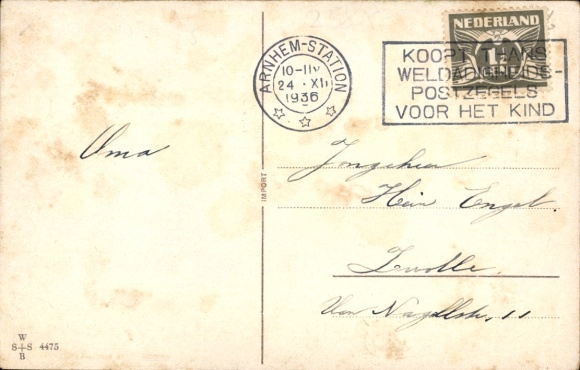 NEDERLAND
1½
ARNHEM-STATION
10-11V
24 XII
1936
KOOPT THANS
WELDADIGHEIDS-
POSTZEGELS
VOOR HET KIND
Oma
Jongeheer
Hein Engel.
Zwolle.
Van Nagellstr. 11
IMPORT
W
S+S 4475
B